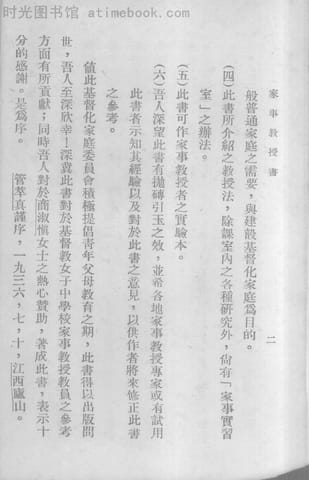 时光图书馆 atimebook.com
家事教授書
二
般普通家庭之需要，與建設基督化家庭爲目的。
（四）此書所介紹之教授法，除課室內之各種研究外，尙有「家事實習
室」之辦法。
（五）此書可作家事教授者之實驗本。
（六）吾人深望此書有拋磚引玉之效，並希各地家事教授專家或有試用
此書者示知其經驗以及對於此書之意見，以供作者將來修正此書
之參考。
値此基督化家庭委員會積極提倡靑年父母教育之期，此書得以出版問
世，吾人至深欣幸！深冀此書對於基督教女子中學校家事教授教員之參考
方面有所貢獻；同時吾人對於商淑愼女士之熱心贊助，著成此書，表示十
分的感謝。是爲序。　管萃眞謹序，一九三六，七，十，江西廬山。